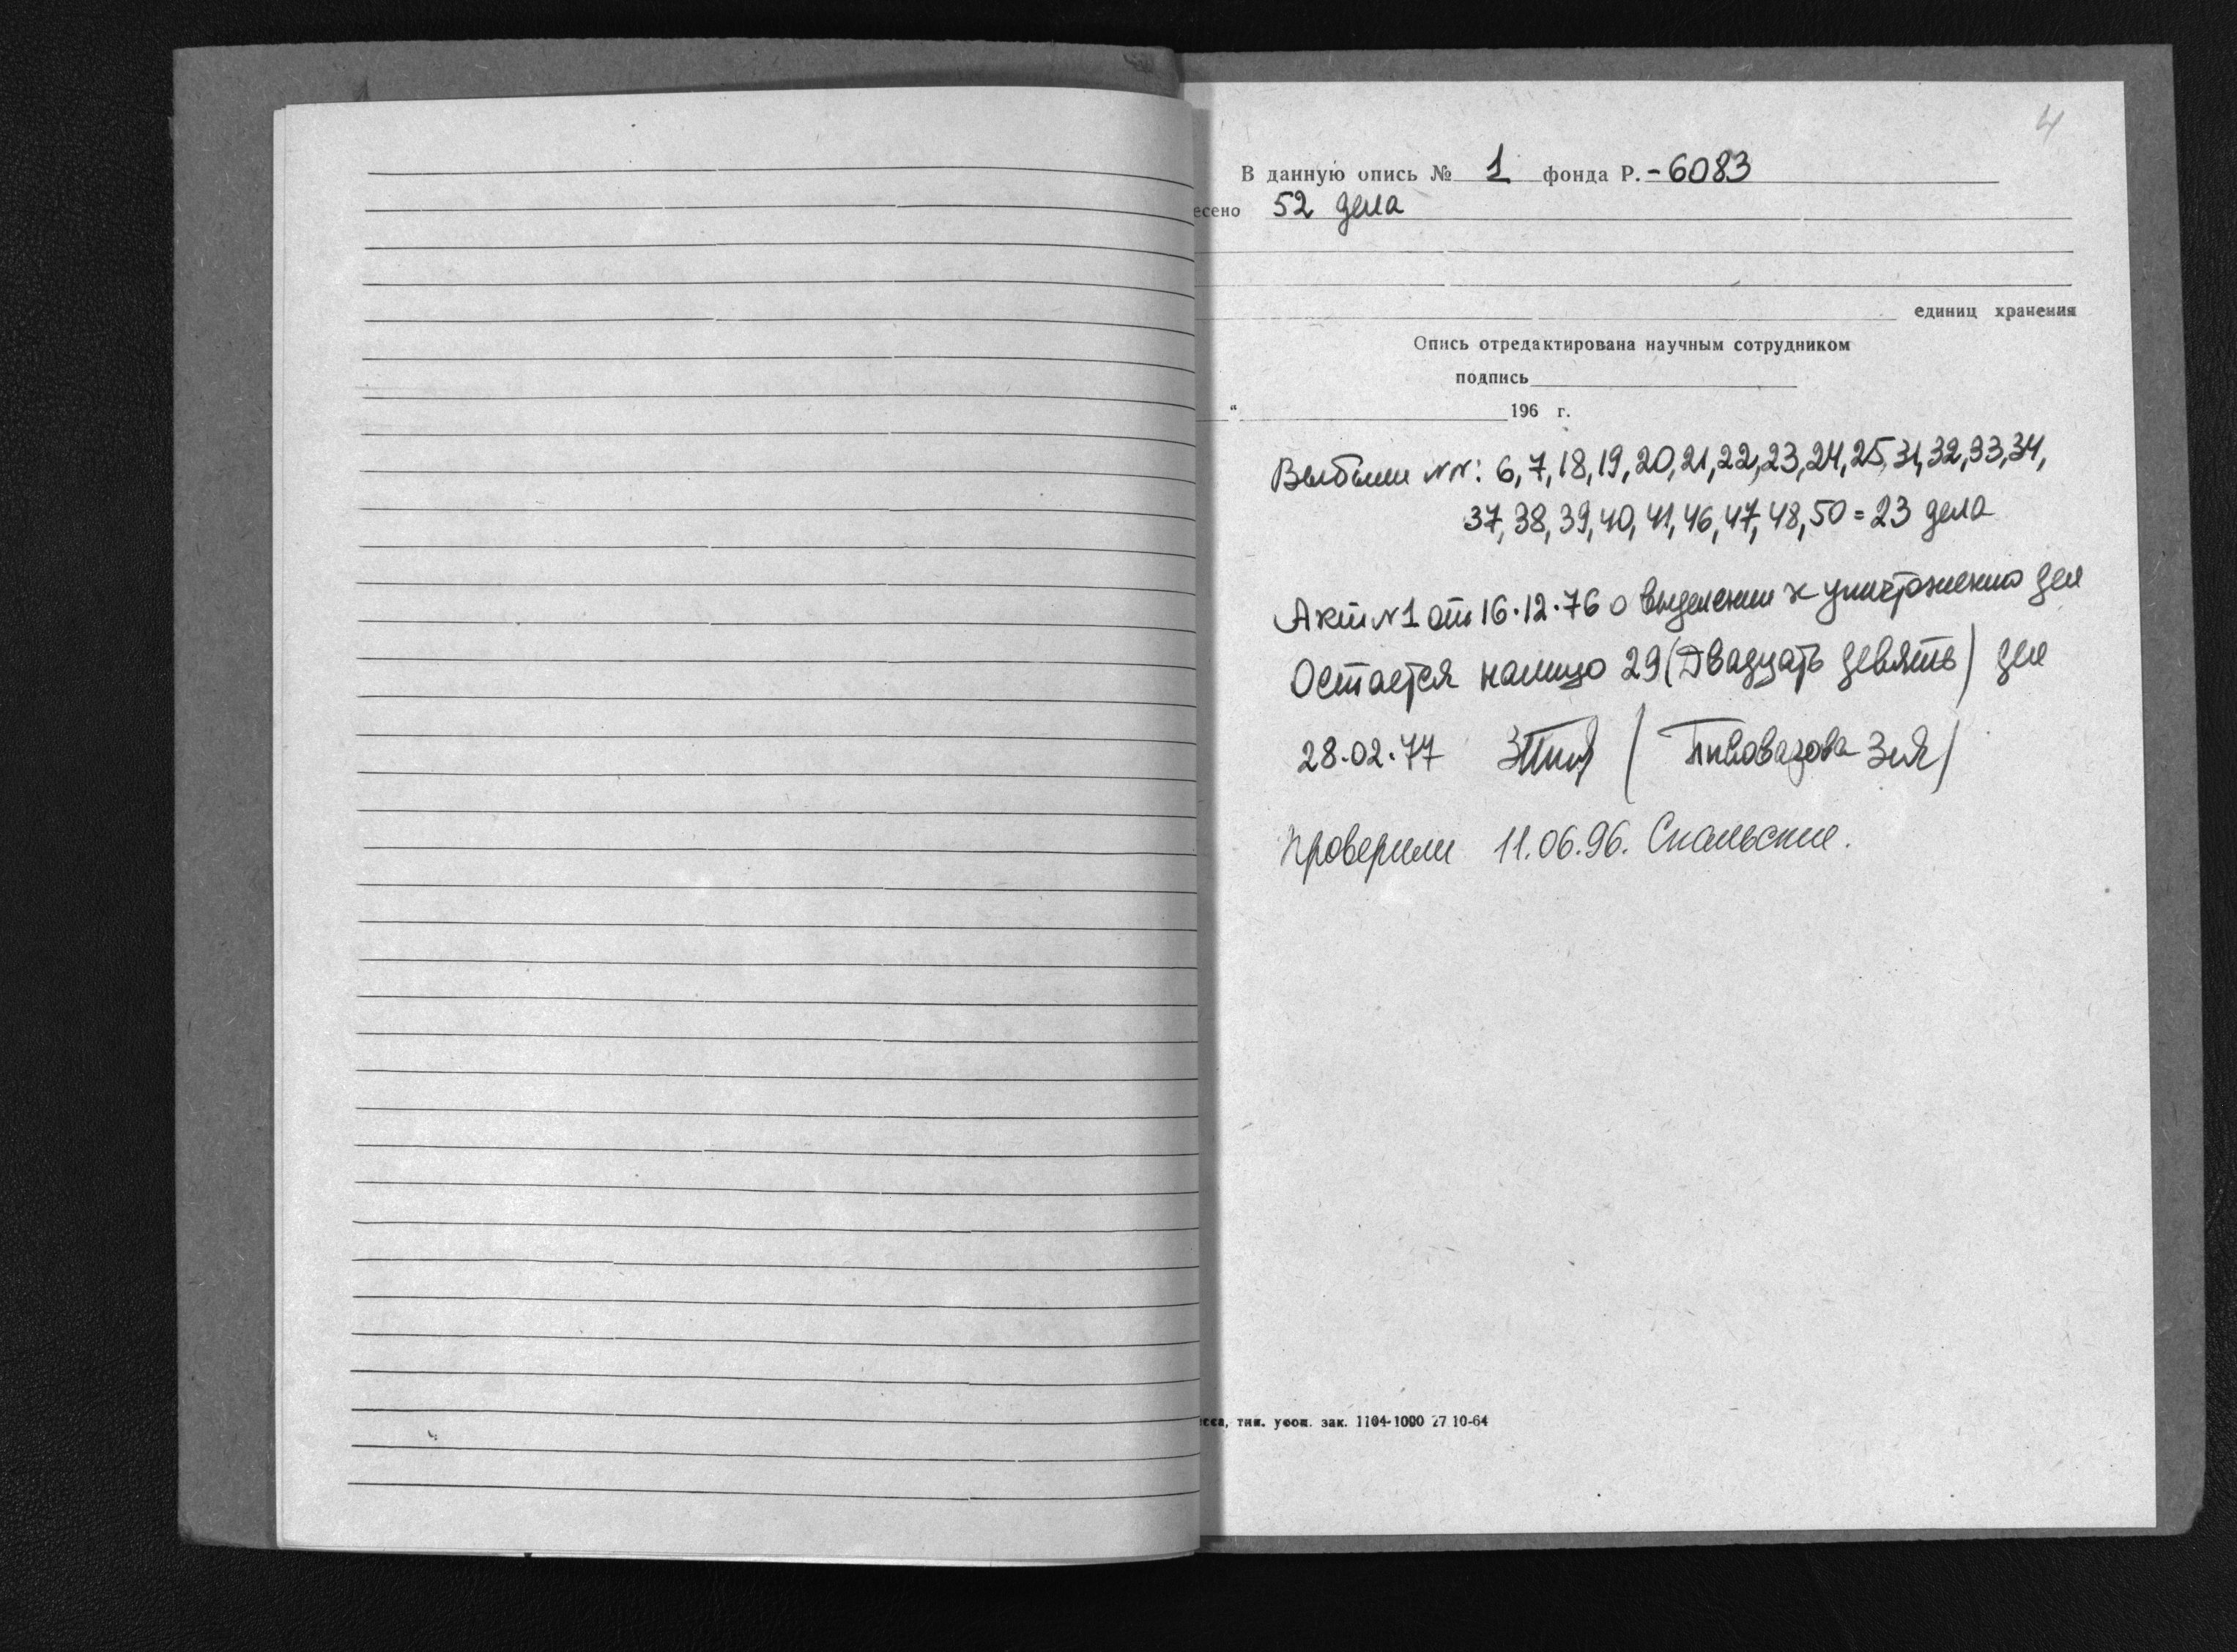 4
В данную опись № 1 фонда Р. - 6083
есено 52 дела
единиц хранения
Опись отредактирована научным сотрудником
подпись
“ 196 г.
Выбыли NN: 6, 7, 18, 19, 20, 21, 22, 23, 24, 25, 31, 32, 33, 34,
37, 38, 39, 40, 41, 46, 47, 48, 50 = 23 дела
Акт N 1 от 16.12.76 о выделении к уничтожению дел
Остается налицо 29 (Двадцать девять) дел
28.02.77 ( Пивоварова )
Проверили 11.06.96.
сса, тип. зак. 1104-1000 27.10-64